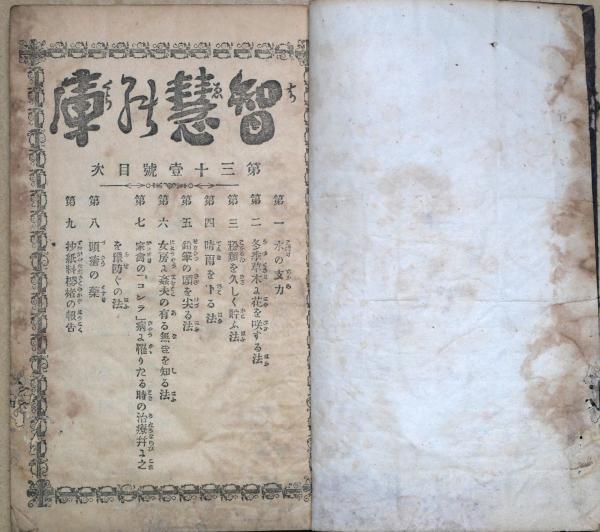 智慧の庫
第三十壹號目次
第一 氷の支力
第二 冬季草木よ花を咲する法
第三 麺類を久しく貯ふ法
第四 晴雨を卜る法
第五 鉛筆の頭を尖る法
第六 女房よ姦夫の有る無を知る法
第七 家禽の「コレラ」病よ罹りたる時の治療并よ之
を豫防ぐの法
第八 頭瘡の藥
第九 抄紙料楮の報告